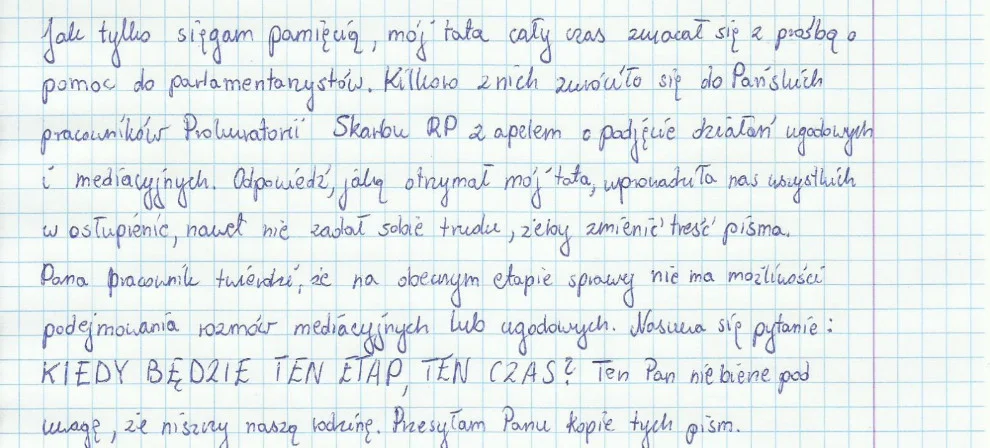 Jak tylko sięgam pamięcią, mój tata cały czas zwracał się z prośbą o
pomoc do parlamentarzystów. Kilkoro z nich zwróciło się do Pańskich
pracowników Prokuratorii Skarbu RP z apelem o podjęcie działań ugodowych
i mediacyjnych. Odpowiedź, jaką otrzymał mój tata, wprowadziła nas wszystkich
w osłupienie, nawet nie zadał sobie trudu, żeby zmienić treść pisma.
Pana pracownik twierdzi, że na obecnym etapie sprawy nie ma możliwości
podejmowania rozmów mediacyjnych lub ugodowych. Nasuwa się pytanie:
KIEDY BĘDZIE TEN ETAP, TEN CZAS? Ten Pan nie bierze pod
uwagę, że niszczy naszą rodzinę. Przesyłam Panu kopie tych pism.